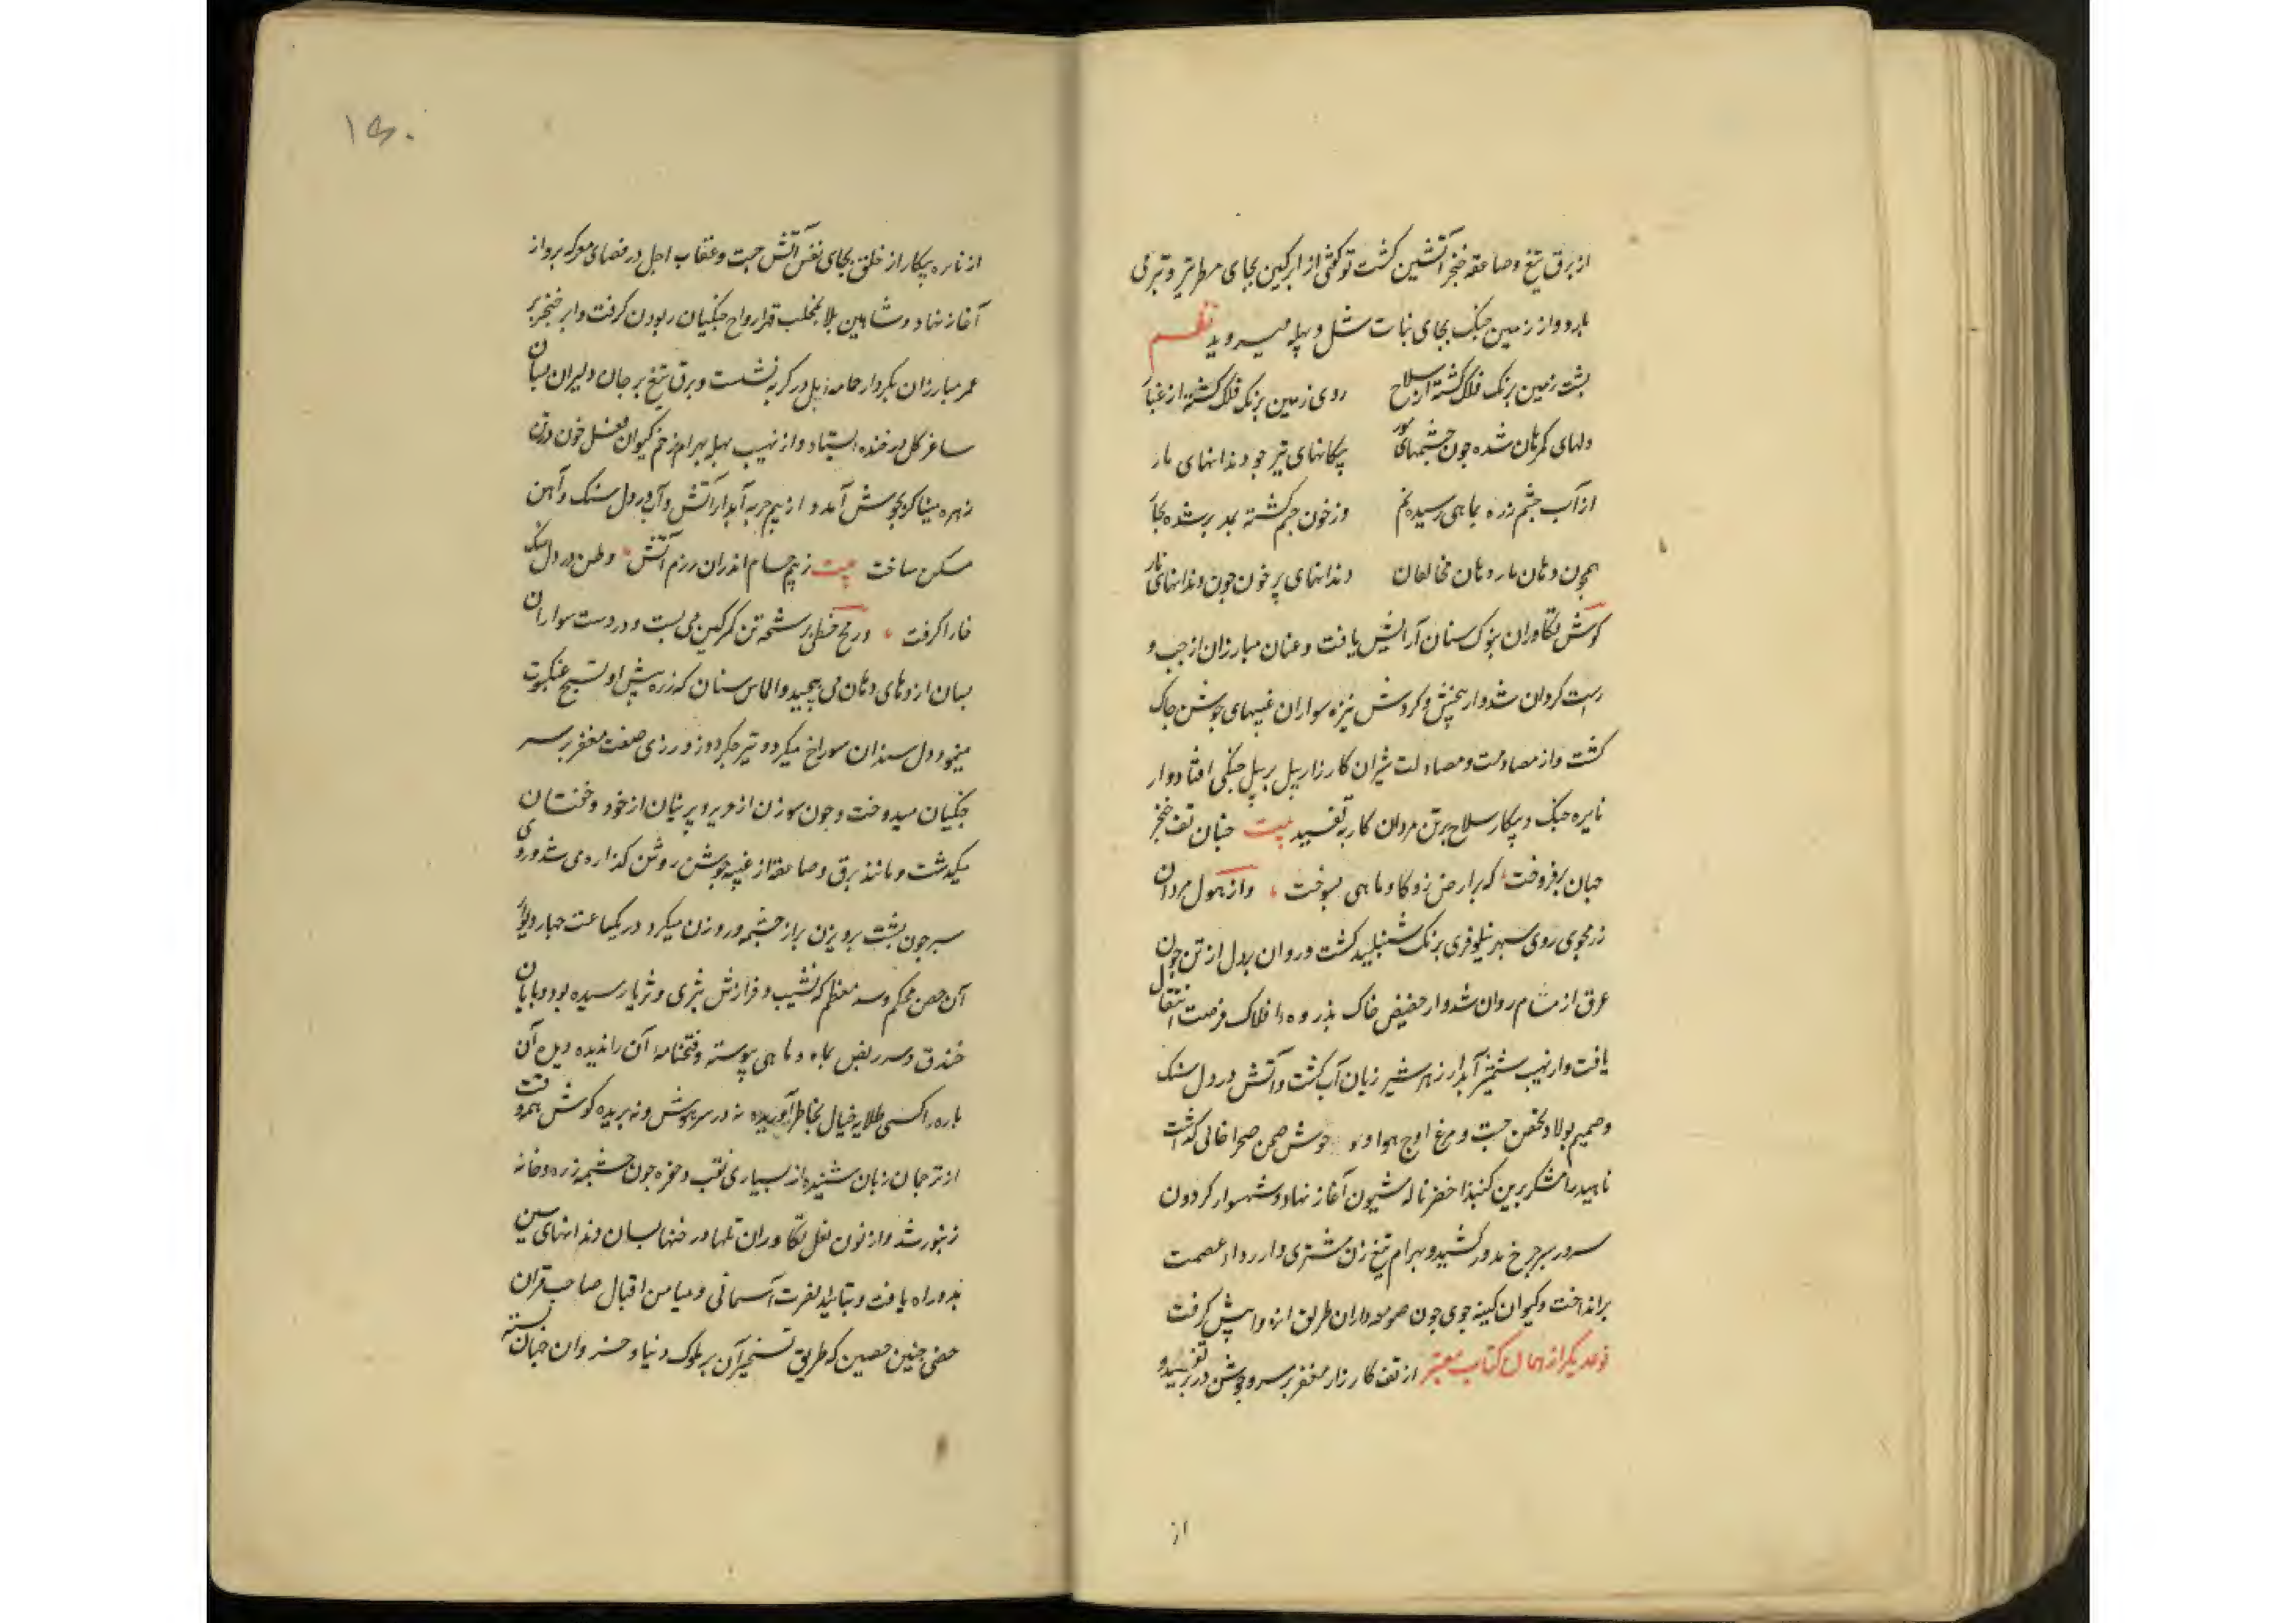 از برق تیغ و صاعقه خنجر آتشین کشت تو کفتی از ابر کین بجای مطر تیر و تبر می
بارد و از زمین جنک بجای نبات شل و بیله میروید نظم
پشت زمین برنک فلک کشته از سلاح روی زمین برنک فلک کشته از غبار
دلهای کمرهان شده چون چشمهای مور پیکانهای تیر چو دندانهای مار
از آب چشم زره بماهی رسیده نم وز خون جسم کشته بمه بر شده بخار
همچون دهان مار دهان مخالفان دندانهای پر خون چون دندانهای نار
کوش تکاوران بنوک سنان آرایش یافت و عنان مبارزان از چپ و
راست کردان شد و از جنبش و کردش نیزه سواران غیبهای جوشن چاک
کشت و از مصادمت و مصاولت شیران کارزار پیل بر پیل جنکی افتاد و از
نایره جنک و پیکار سلاح بر تن مردان کار بتفسید بیت چنان تف خنجر
جهان برفروخت که بر ارض زو کاو و ماهی بسوخت و از هول مردان
رزمجوی روی سپهر نیلوفری برنک شنبلید کشت و روان یلان از تن چون
عرق از مشام روان شد و از حضیض خاک بذروه افلاک فرصت انتقال
یافت و از نهیب شمشیر آبدار زهره شیر ژیان آب کشت و آتش در دل سنک
و صمیم پولاد تحصن جست و مرغ اوج هوا و وحوش صحن صحرا خالی کذاشت
ناهید رامشکر برین کنبد اخضر ناله شیون آغاز نهاد و شهسوار کردون
سپر در سر چرخ مدور کشید و بهرام تیغ زن مشتری وار رداء عصمت
برانداخت و کیوان کینه جوی چون صومعه داران طریق انزوا پیش کرفت
نوع دیکر از همان کتاب معتبر از تف کارزار مغفر بر سر و جوشن در بر تفسید و
از
۱۵۰
از نایره پیکار از خلق بجای نفس آتش جست و عقاب اجل در فضای معرکه پرواز
آغاز نهاد و شاهین بلا بمخلب قهر ارواح جنکیان ربودن کرفت و ابر خنجر بر
عمر مبارزان بکردار جامه نیل در کریه نشست و برق تیغ بر جان دلیران بسان
ساغر کل در خنده ایستاد و از نهیب بیله بهرام زخم کیوان فعل خون در تن
زهره میناکون بجوش آمد و از بیم حربه آبدار آتش و آب در دل سنک و آهن
مسکن ساخت بیت ز بیم حسام اندران رزم آتش وطن در دل سنک
خارا کرفت و رمح خطی بر شخه تن کمر کین می بست و در دست سواران
بسان اژدهای دمان می پیچید و الماس سنان که زره پیش او نسج عنکبوت
مینمود دل سندان سوراخ میکرد و تیر جکردوز درزی صفت مغفر بر سر
جنکیان میدوخت و چون سوزن از حریر و پرنیان از خود و خفتان
میکذشت و مانند برق و صاعقه از غیبه جوشن روشن کذاره می شد و روی
سپر چون پشت پرویزن پر از چشمه و روزن میکرد در یکساعت چهار دیوار
آن حصن محکم و سد معظم که نشیب و فرازش بثری و ثریا رسیده بود و پایان
خندق و سر ربض بماه و ماهی پیوسته و فتحنامه آن را ندیده دیده آن
باره را کسی طلایه خیال بخاطر آوریده نه در سر هوش و نه بریده کوش هم وقت
از ترجمان زبان شنیده از بسیاری نقب و حفره چون چشمه زره و خانه
زنبور شد و از نون نعل تکاوران ثلمها و رخنها بسان دندانهای سین
بدو راه یافت و بتایید نصرت آسمانی و میامن اقبال صاحبقران
حصنی چنین حصین که طریق تسخیر آن بر ملوک دنیا و خسروان جهان بسته